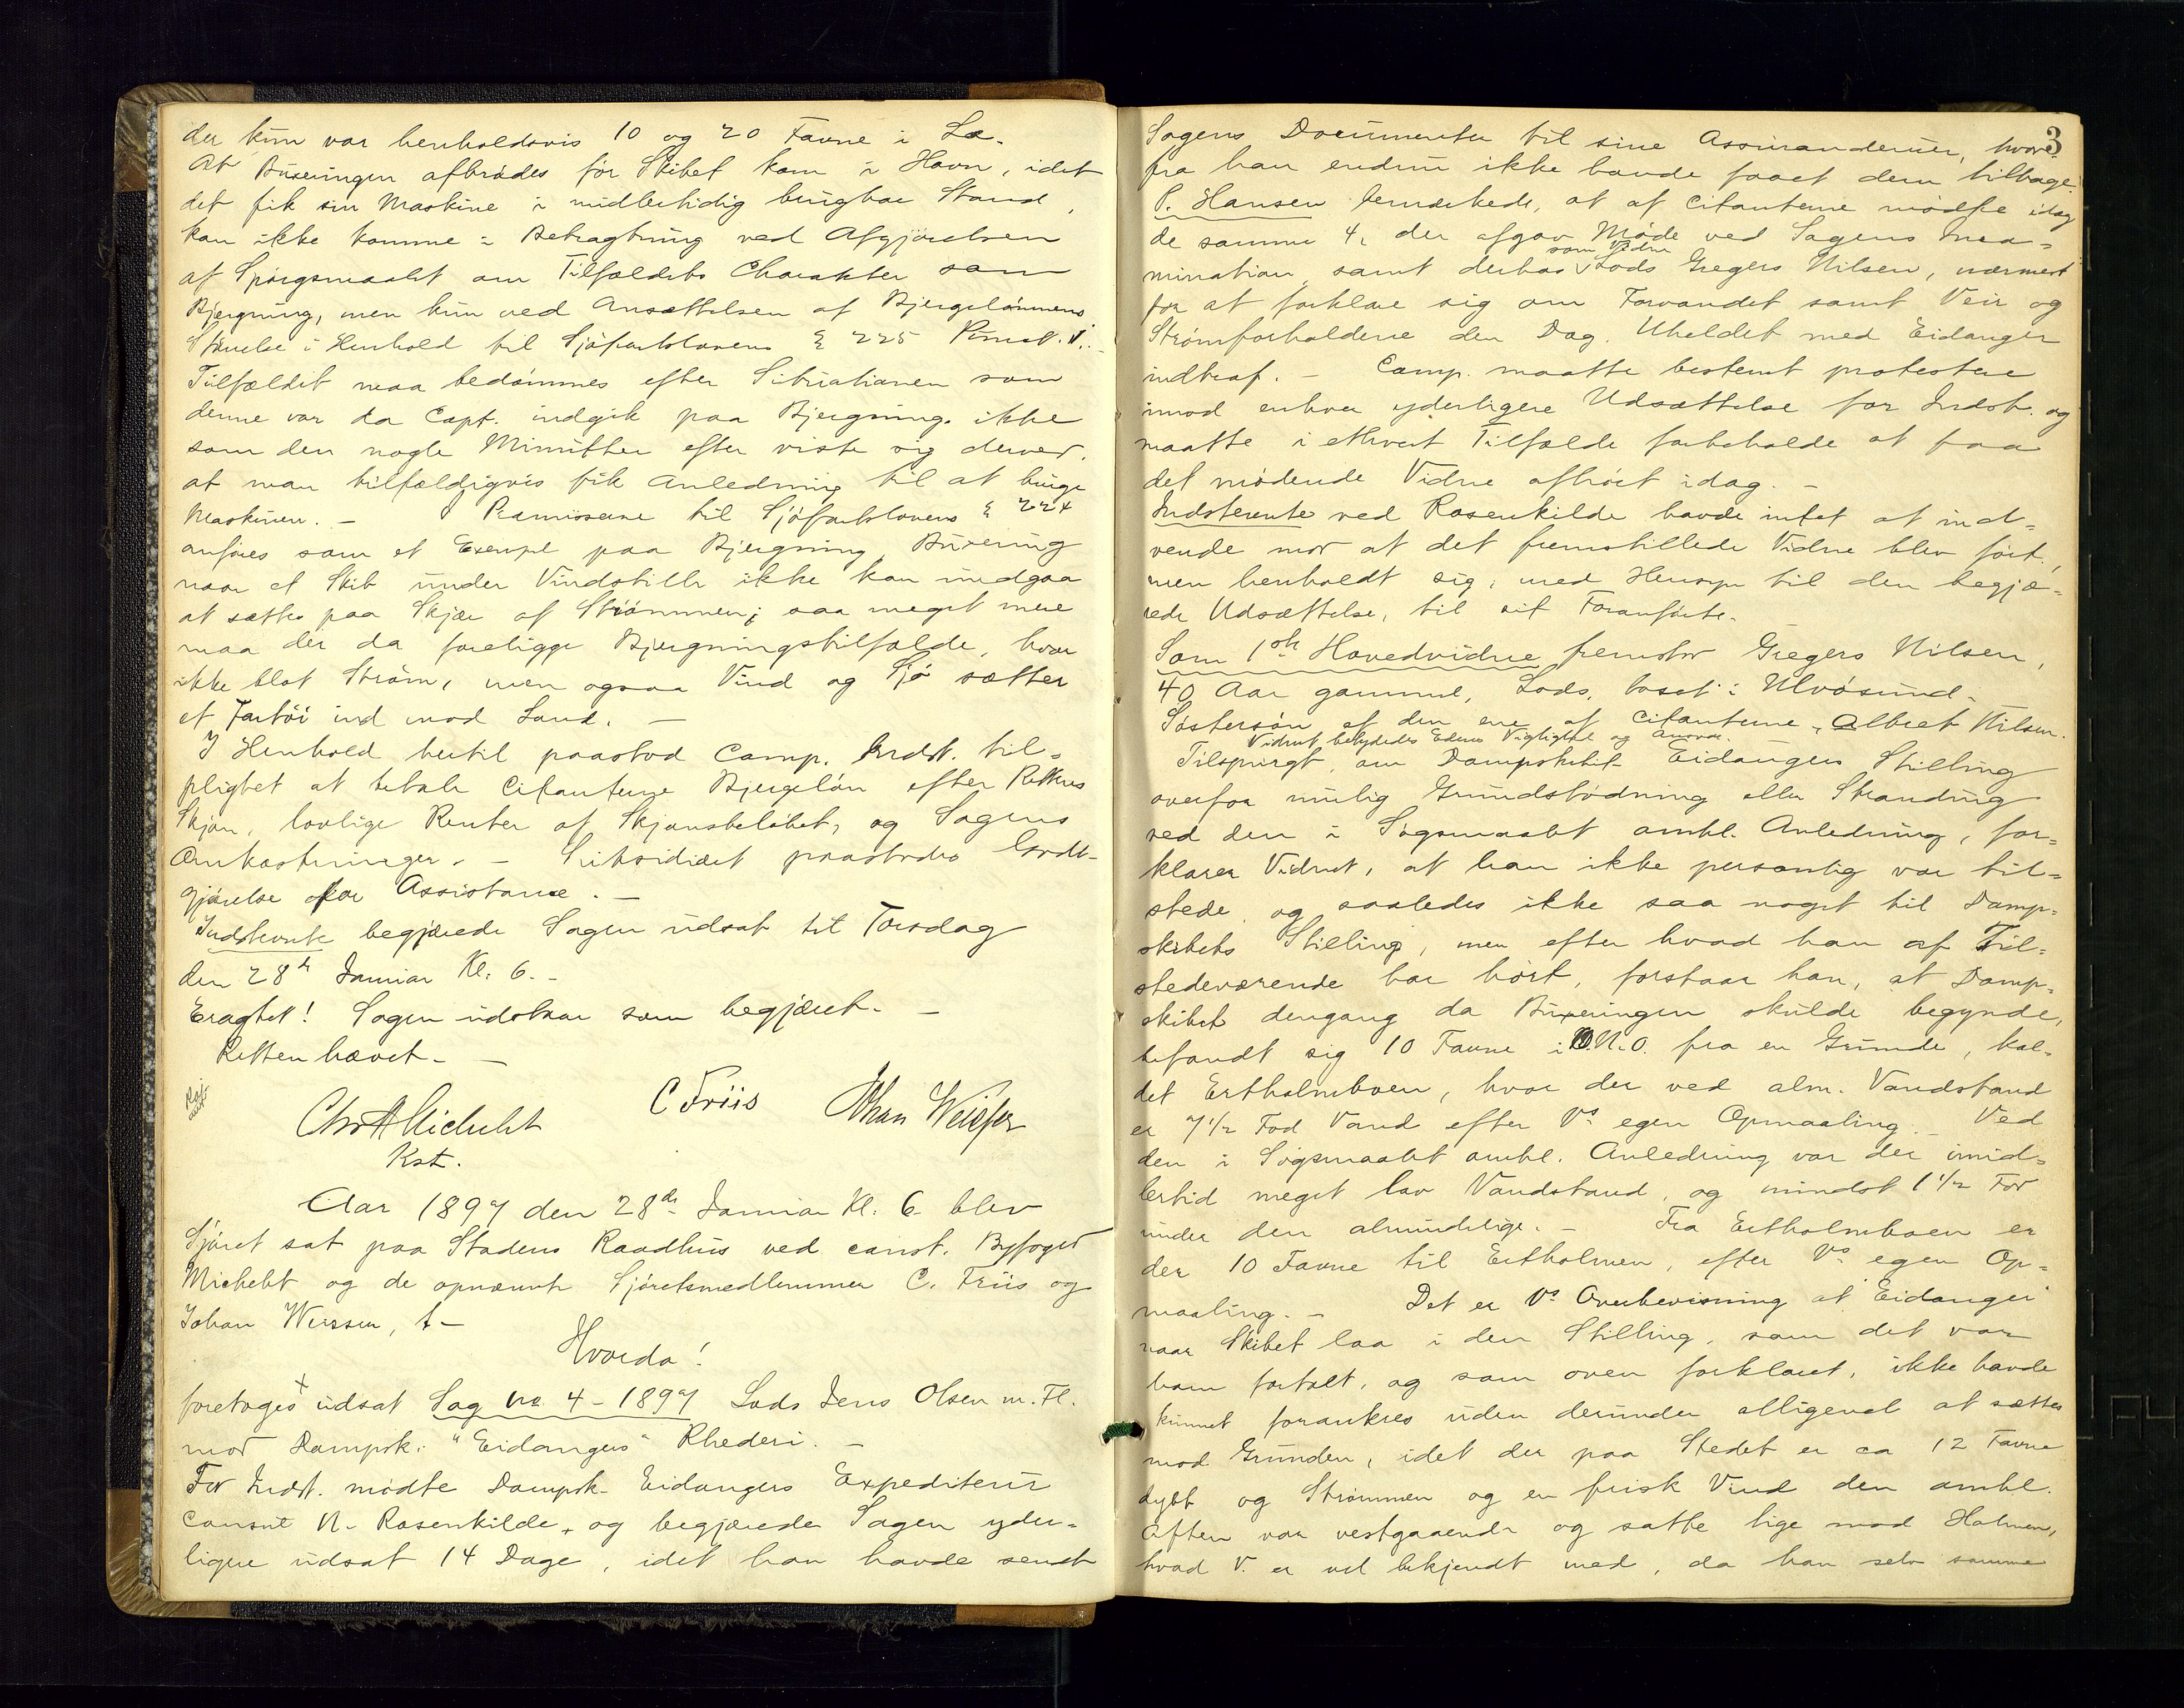 der kun var henholdsvis 10 og 20 Favne i Læ.
At Buxeringen afbrødes før Skibet kom i Havn, idet
det fik sin Maskine i midlertidig brugbar Stand,
kan ikke komme i Betragtning ved Afgjørelsen
af Spørgsmaalet om Tilfældets Charakter som
Bjergning, men kun ved Ansættelsen af Bjergelønnens
Størrelse i Henhold til Sjøfartslovens § 225
Tilfældet maa bedømmes efter Situationen som
denne var da Capt. indgik paa Bjergning, ikke
som den nogle Minutter efter viste sig derved,
at man tilfældigvis fik Anledning til at bruge
Maskinen. — I Præmisserne til Sjøfartslovens § 224
anføres som et Exempel paa Bjergning, Buxering
naar et Skib under Vindstille ikke kan undgaa
at sættes paa Skjær af Strømmen; saa meget mere
maa der da foreligge Bjergningstilfælde, hvor
ikke blot Strøm, men ogsaa Vind og Sjø sætter
et Fartøi ind mod Land. —
I Henhold hertil paastod Comp. Indst. til-
pligtet at betale Citanterne Bjergeløn efter Rettens
Skjøn, lovlige Renter af Skjønsbeløbet, og Sagens
Omkostninger. — Subsidiært paastodes Godt-
gjørelse for Assistance. —
Indstevnte begjærede Sagen udsat til Torsdag
den 28de Januar Kl. 6. —
Eragtet! Sagen udsættes som begjæret. —
Retten hævet. —
Chr A Michelet
Kst.
C Friis
Johan Weissen
Aar 1897 den 28de Januar Kl. 6 blev
Sjøret sat paa Stadens Raadhus ved const. Byfoged
Michelet og de opnævnte Sjøretsmedlemmer C. Friis og
Johan Weissen, †—
Hvorda!
foretoges udsat Sag No 4 - 1897 Lods Jens Olsen m. Fl.
mod Dampsk. "Eidangers" Rhederi. —
For Indst. mødte Dampsk. Eidangers Expediteur
Consul N. Rosenkilde, og begjærede Sagen yder-
ligere udsat 14 Dage, idet han havde sendt
3
Sagens Documenter til sine Assurandeurer, hvor-
fra han endnu ikke havde faaet dem tilbage.
P. Hansen bemærkede, at af Citanterne mødte idag
de samme 4, der afgav Møde ved Sagens
som Vidne
mination, samt derhos Lods Gregers Nilsen, nærmest
for at forklare sig om Farvandet samt Veir og
Strømforholdene den Dag Uheldet med Eidanger
indtraf. — Comp. maatte bestemt protestere
imod enhver yderligere Udsættelse for Indst. og
maatte i ethvert Tilfælde forbeholde at faa
det mødende Vidne afhørt idag. —
Indstevnte ved Rosenkilde havde intet at ind-
vende mod at det fremstillede Vidne blev ført,
men henholdt sig, med Hensyn til den begjæ-
rede Udsættelse, til sit Foranførte.
Som 1ste Hovedvidne fremstod Gregers Nilsen,
40 Aar gammel, Lods, bosat i Ulvøsund.
Søstersøn af den ene af Citanterne, Albert Nilsen.
Vidnet betydedes Edens Vigtighed og Ansvar.
Tilspurgt, om Dampskibet Eidangers Stilling
overfor mulig Grundstødning eller Stranding
ved den i Søgsmaalet omhl. Anledning, for-
klarer Vidnet, at han ikke personlig var til-
stede, og saaledes ikke saa noget til Damp-
skibets Stilling, men efter hvad han af Til-
stedeværende har hørt, forstaar han, at Damp-
skibet dengang da Buxeringen skulde begynde,
befandt sig 10 Favne i O.N.O. fra en Grunde, kal-
det Ertholmboen, hvor der ved alm. Vandstand
er 7 1/2 Fod Vand efter Vs egen Opmaaling. — Ved
den i Søgsmaalet omhl. Anledning var der imid-
lertid meget lav Vandstand, og mindst 1 1/2 Fod
under den almindelige. — Fra Ertholmboen er
der 10 Favne til Ertholmen, efter Vs egen Op-
maaling. — Det er Vs Overbevisning at Eidanger
naar Skibet laa i den Stilling, som det var
ham fortalt, og som oven forklaret, ikke havde
kunnet forankres uden derunder alligevel at sættes
mod Grunden, idet der paa Stedet er ca 12 Favne
dybt og Strømmen og en frisk Vind den omhl.
Aften var vestgaaende og satte lige mod Holmen,
hvad V. er vel bekjendt med, da han selv samme